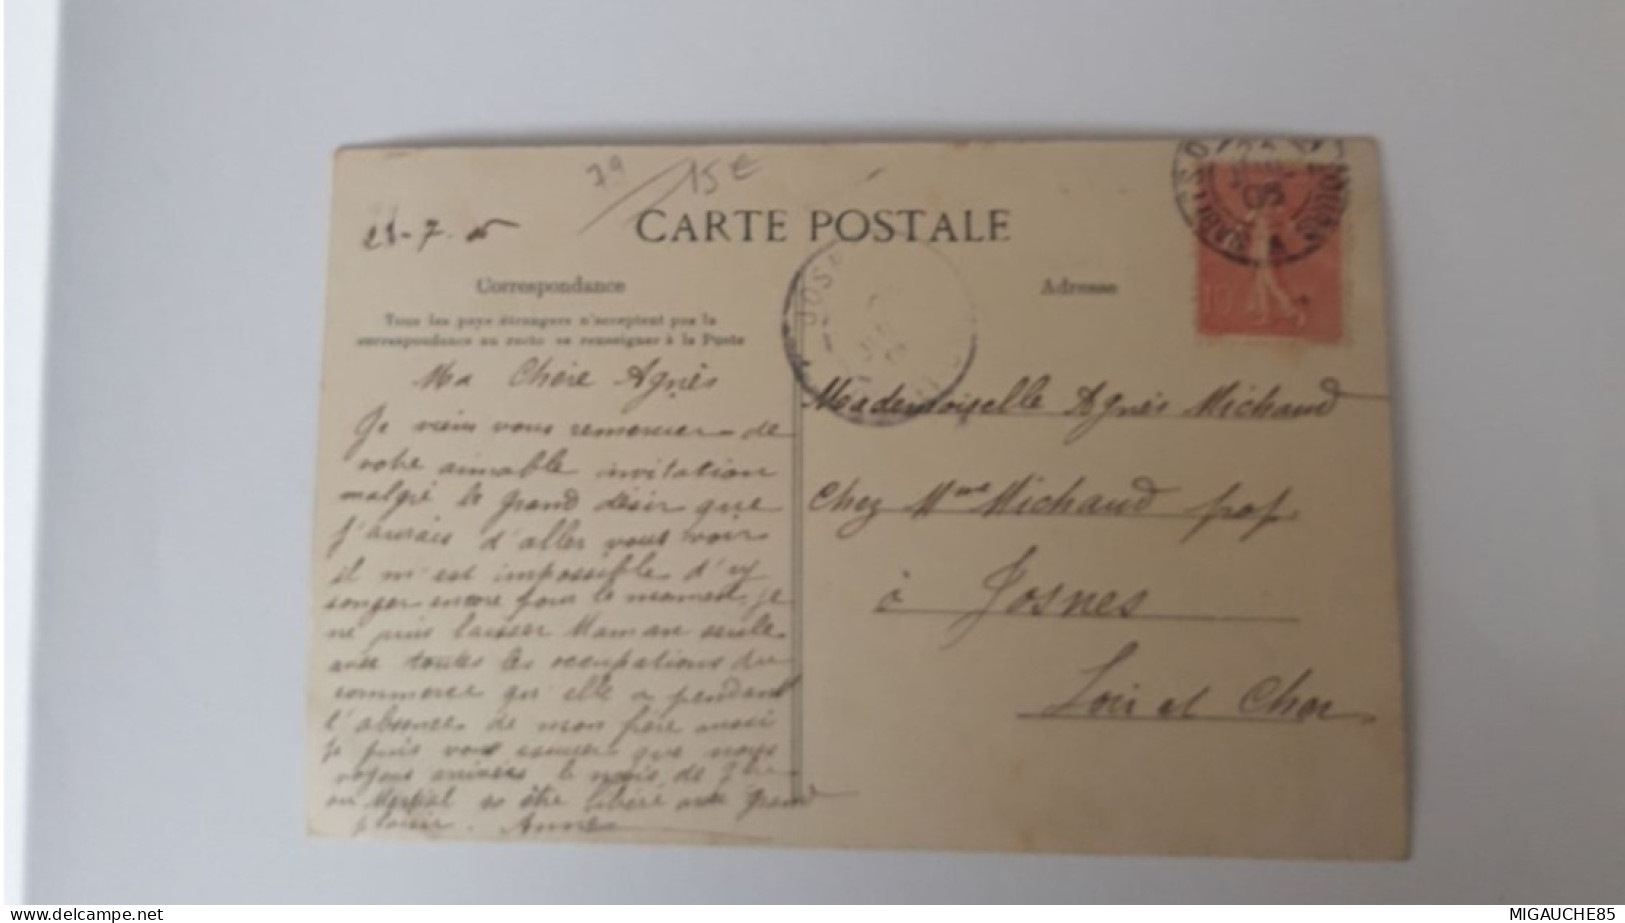 79 15€
CARTE POSTALE
-7-05
Correspondance
Adresse
Tous les pays étrangers n'acceptent pas la
correspondance au recto se renseigner à la Poste
JOSNES
05
10
Ma Chère Agnès
Je viens vous remercier de
votre aimable invitation
malgré le grand désir que
j'aurais d'aller vous voir
il m'est impossible d'y
songer encore pour le moment, je
ne puis laisser Maman seule
avec toutes les occupations du
commerce qu'elle a pendant
l'absence de mon père aussi
je puis vous assurer que nous
voyons arriver le mois de
ou Martial va être libéré avec grand
plaisir. Anna
Mademoiselle Agnès Michaud
Chez Mme Michaud prop
à Josnes
Loir et Cher
delcampe.net
MIGAUCHE85